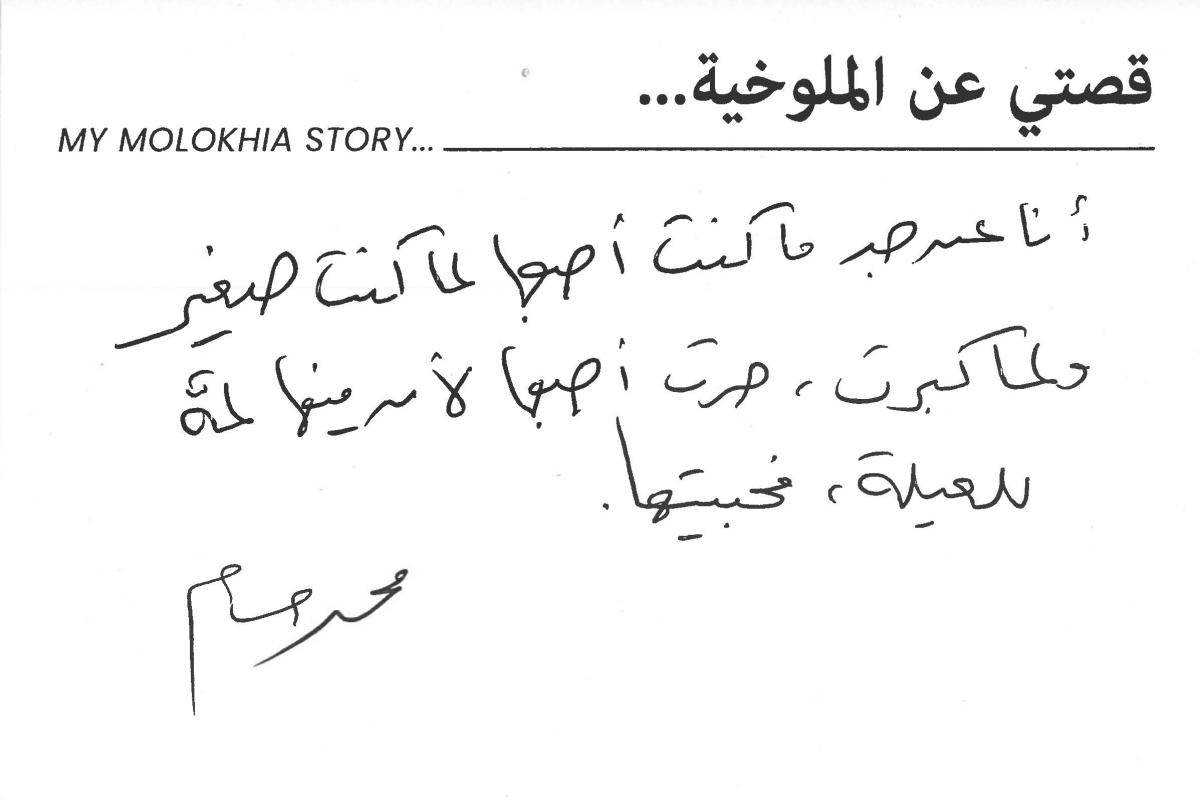 قصتي عن الملوخية...
MY MOLOKHIA STORY...
أنا عن جد ما كنت أحبها لما كنت صغير
ولما كبرت، صرت أحبها لأن فيها لمة
للعيلة، فحبيتها.
محمد حسام